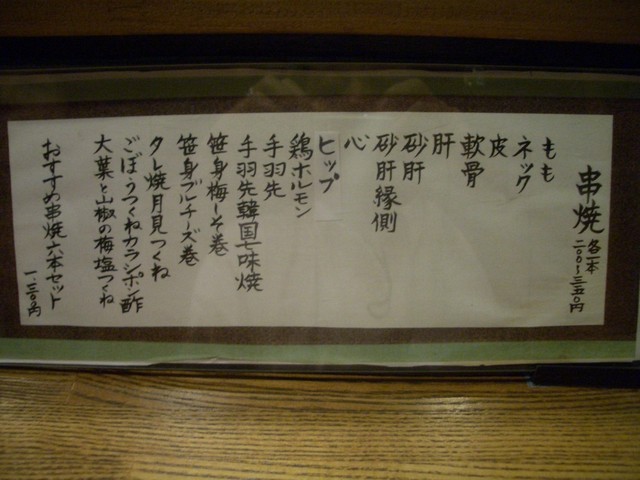 串焼
各一本
二〇〇〜三五〇円
もも
ネック
皮
軟骨
肝
砂肝
砂肝縁側
心
ヒップ
鶏ホルモン
手羽先
手羽先韓国七味焼
笹身梅しそ巻
笹身ブルチーズ巻
タレ焼月見つくね
ごぼうつくねカラシポン酢
大葉と山椒の梅塩つくね
おすすめ串焼六本セット
一、三〇〇円